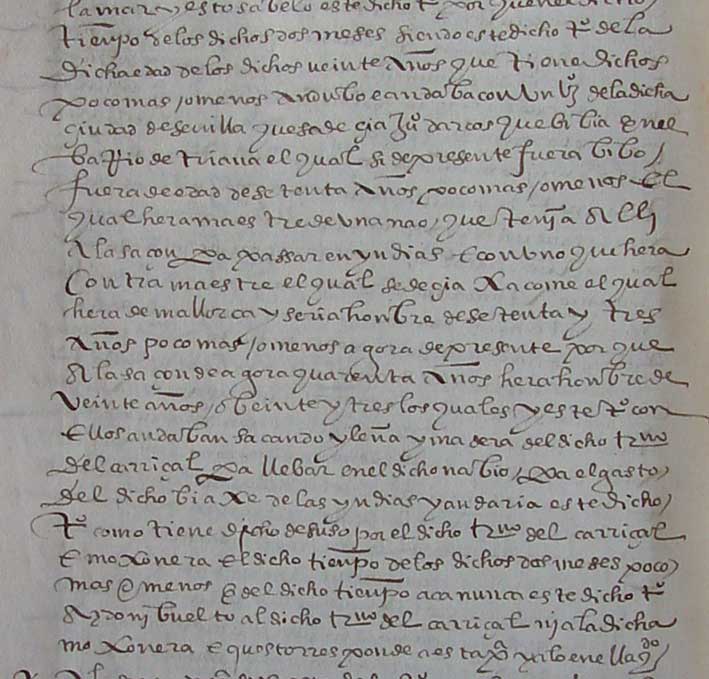 la mar y esto sabelo este dicho tº por que en el dicho
tienpo de los dichos dos meses siendo este dicho tº de la
dicha edad de los dichos veinte años que tiene dichos
poco mas / o menos anduvo e andaba con un vzº de la dicha
çiudad de sevilla que se deçia juº darcos que bibia en el
barrio de triana el qual si de presente fuera bibo /
fuera de edad de setenta años poco mas / o menos el
qual hera maestre de una nao / que tenia
a la saçon pa passar en yndias e con uno que hera
contramaestre el qual se deçia xacome el qual
hera de mallorca y seria honbre de setenta y tres
años poco mas / o menos agora de presente por que
a la saçon de agora quarenta años hera honbre de
veinte años / o beinte y tres los quales y este tº con
ellos andaban sacando y leña y madera del dicho trmo
del carriçal pa llebar en el dicho nabio / pa el gasto /
del dicho biaxe de las yndias y andaria este dicho /
tº como tiene dicho desuso por el dicho trmo del carriçal
e moxonera el dicho tienpo de los dichos dos meses poco /
mas o menos e del dicho tienpo aca nunca este dicho tº
a buelto al dicho trmo del carriçal ni a la dicha
moxonera e questo rresponde a esta pª